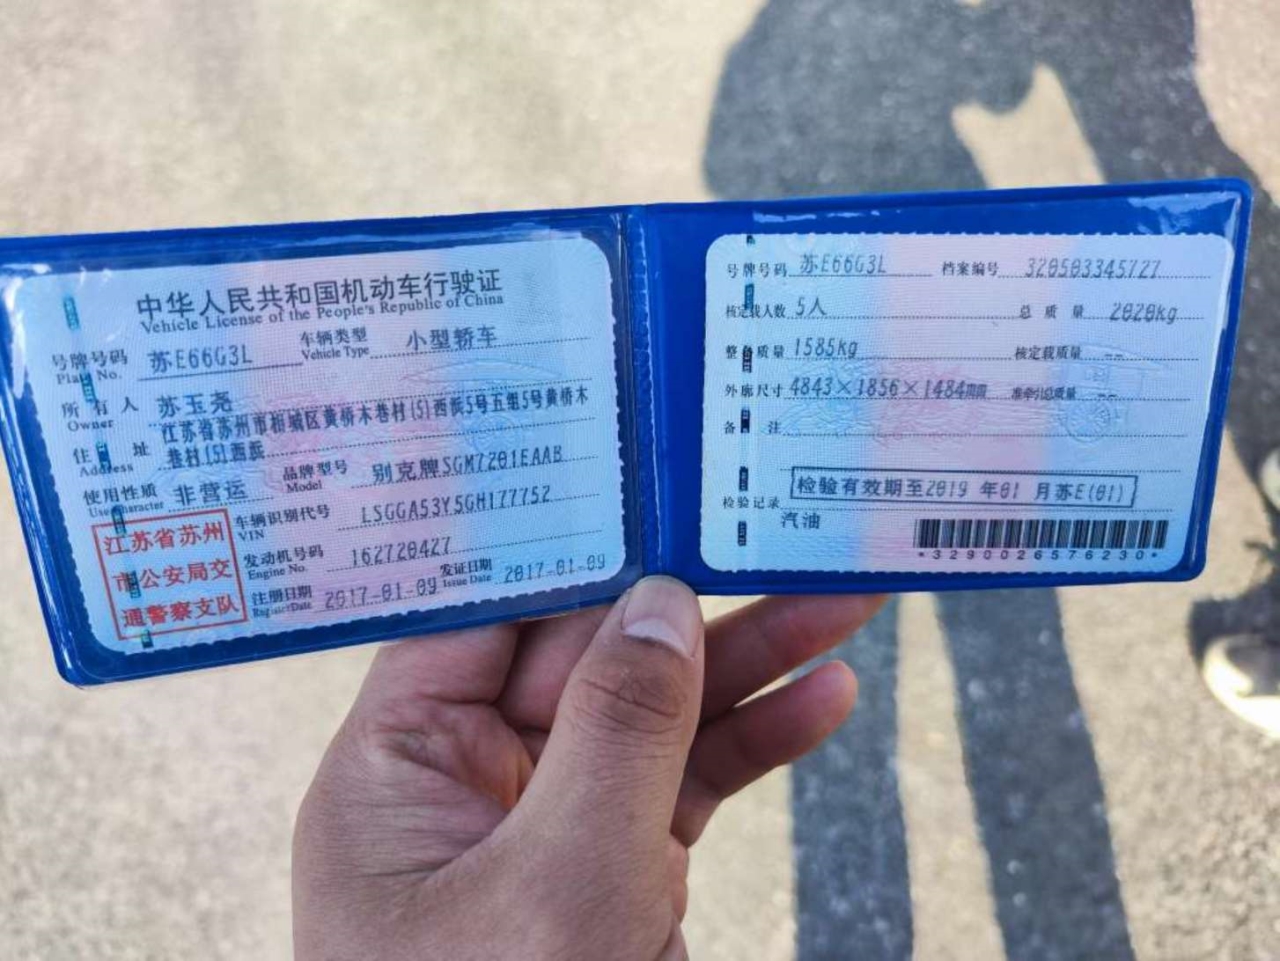 中华人民共和国机动车行驶证
Vehicle License of the People's Republic of China
号牌号码 苏E66G3L 车辆类型 小型轿车
Plate No. Vehicle Type
所有人 苏玉尧
Owner
江苏省苏州市相城区黄桥木巷村(5)西浜5号五组5号黄桥木
住址 巷村(5)西浜
Address
使用性质 非营运 品牌型号 别克牌SGM7201EAAB
Use Character Model
江苏省苏州
市公安局交
通警察支队
车辆识别代号 LSGGA53Y5GH177752
VIN
发动机号码 162720427
Engine No.
注册日期 2017-01-09 发证日期 2017-01-09
Register Date Issue Date
号牌号码 苏E66G3L 档案编号 320503345727
核定载人数 5人 总质量 2020kg
整备质量 1585kg 核定载质量 --
外廓尺寸 4843×1856×1484mm 准牵引总质量 --
备注
检验有效期至2019 年01 月苏E(01)
检验记录
汽油
*3290026576230*